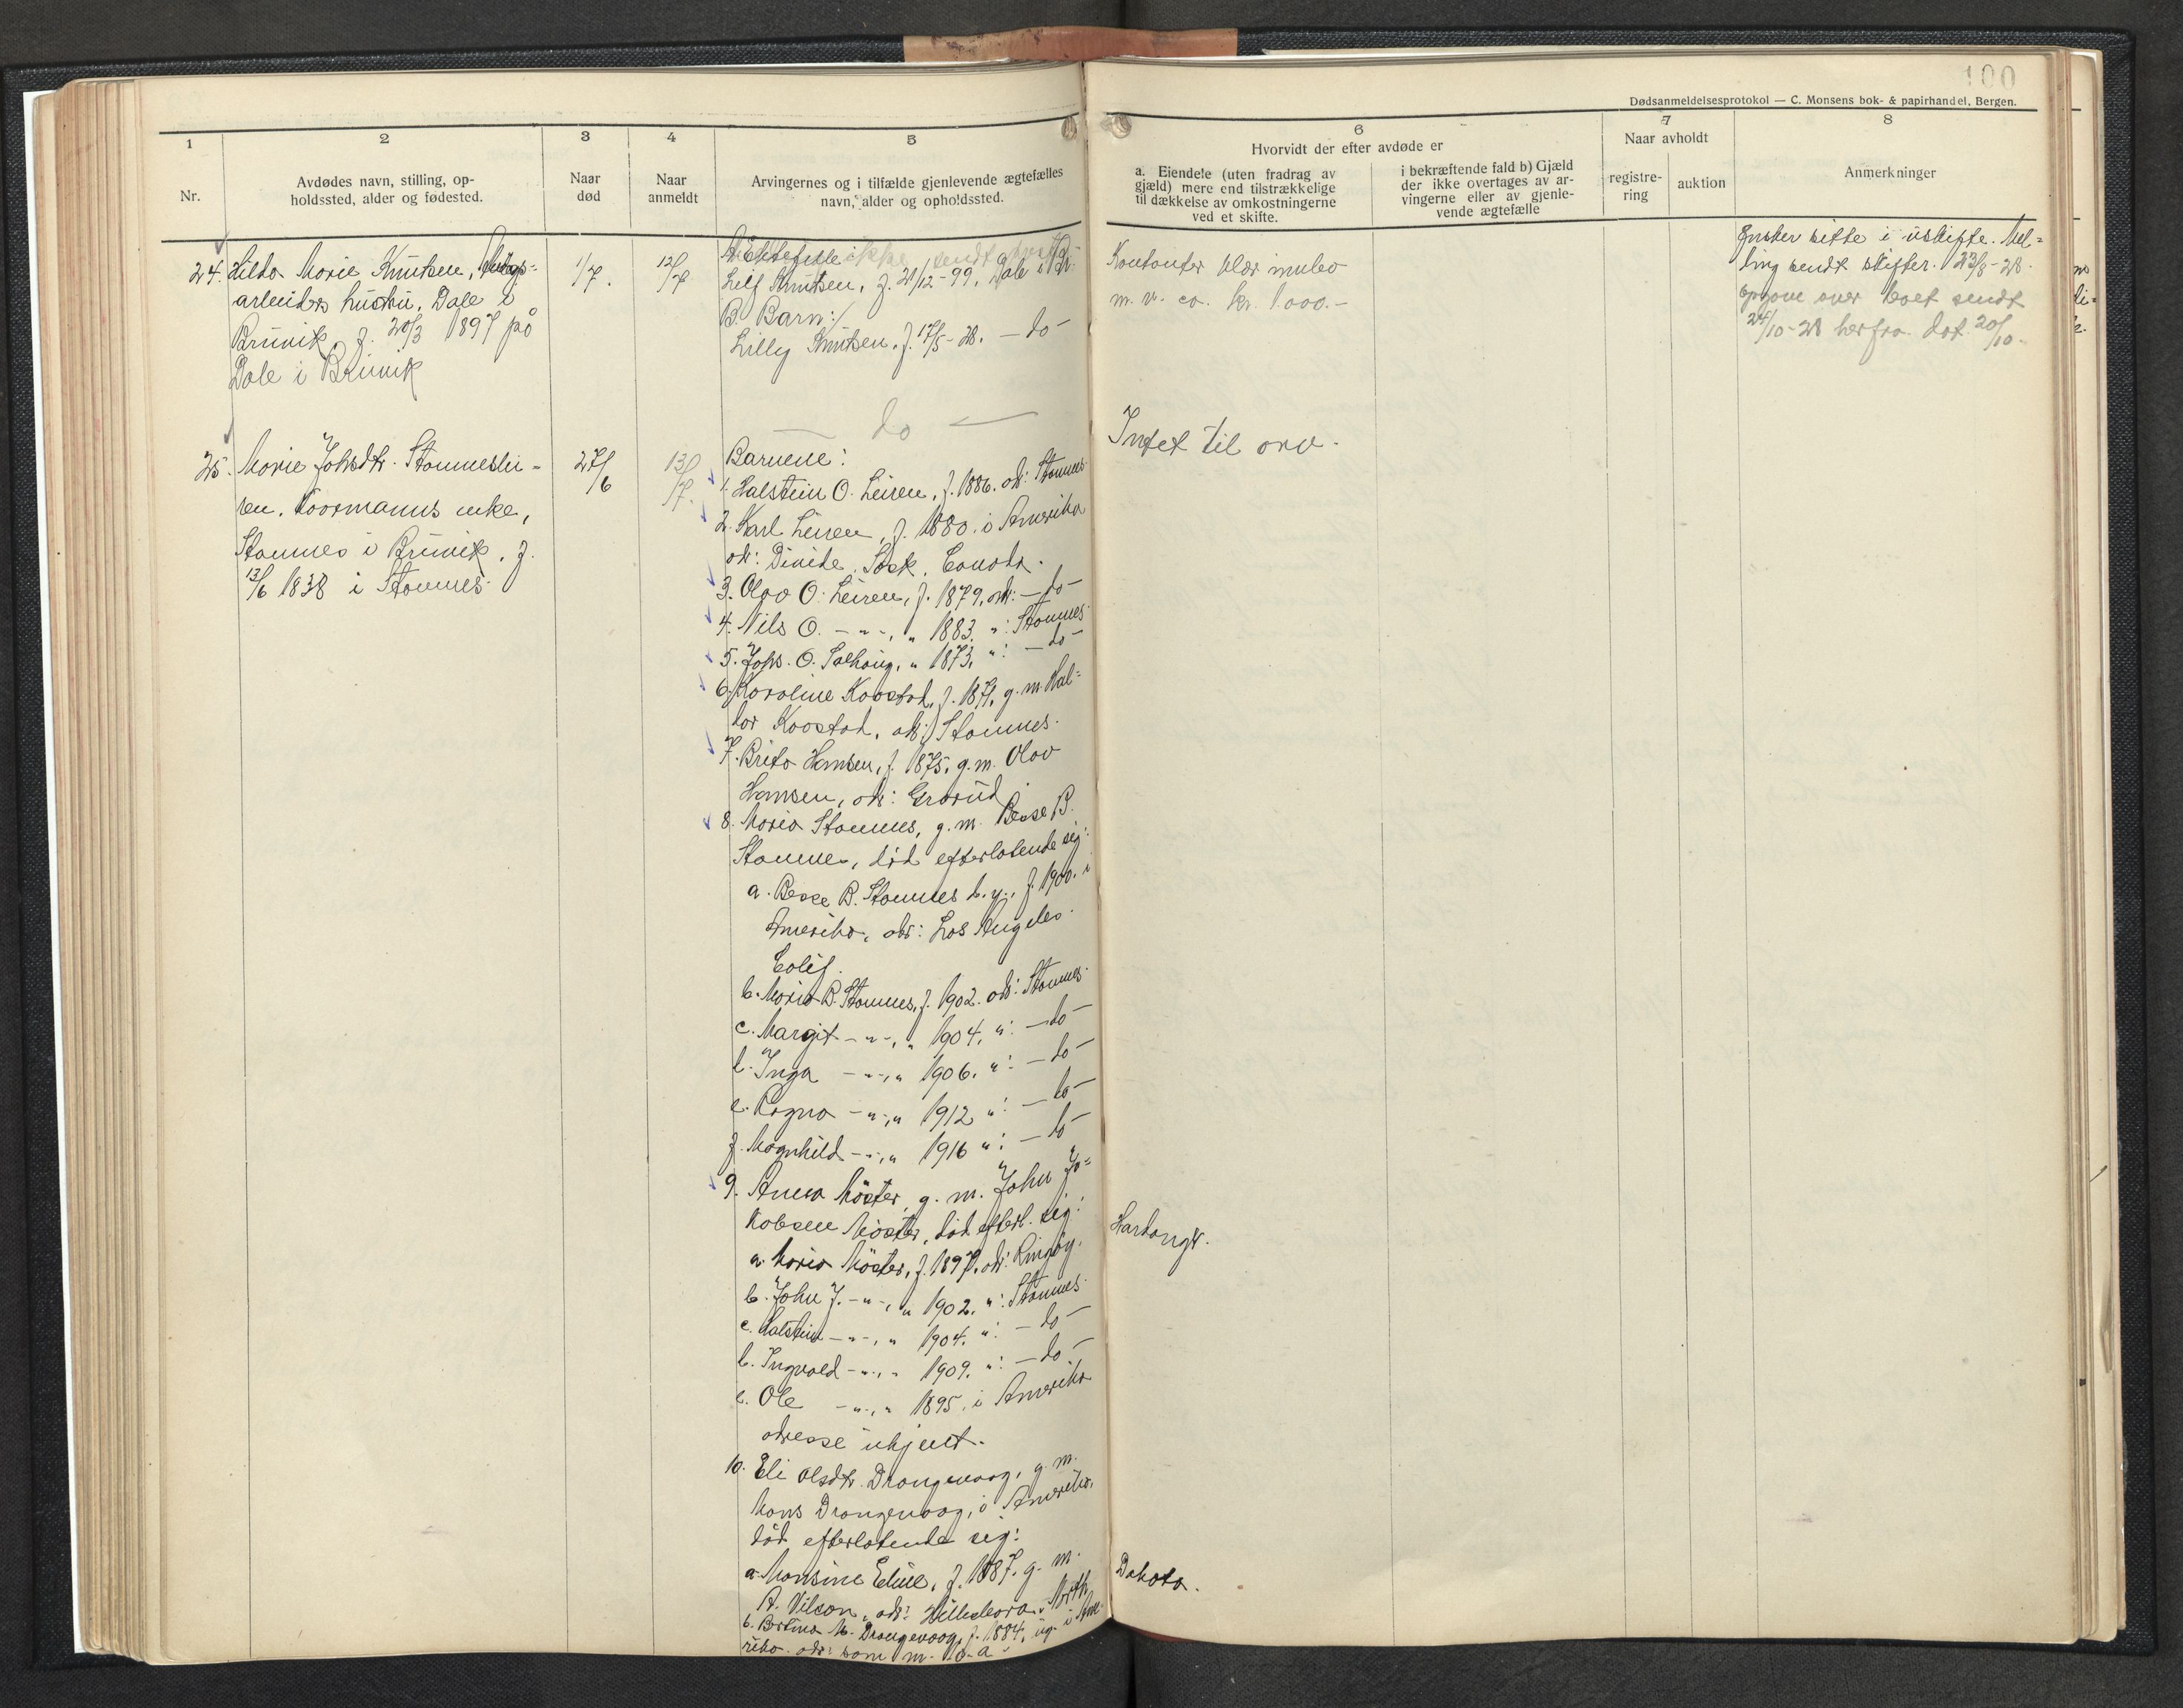 100
Dødsanmeldelsesprotokol — C. Monsens bok- & papirhandel, Bergen.
1
Nr.
2
Avdødes navn, stilling, op-
holdssted, alder og fødested.
3
Naar
død
4
Naar
anmeldt
5
Arvingernes og i tilfælde gjenlevende ægtefælles
navn, alder og opholdssted.
6
Hvorvidt der efter avdøde er
a. Eiendele (uten fradrag av
gjæld) mere end tilstrækkelige
til dækkelse av omkostningerne
ved et skifte.
i bekræftende fald b) Gjæld
der ikke overtages av ar-
vingerne eller av gjenle-
vende ægtefælle
7
Naar avholdt
registre-
ring
auktion
8
Anmerkninger
24. Hilda Marie Knutsen,
arbeiders hustru, Dale i
Bruvik, f. 20/3 1897 på
Dale i Bruvik
1/7.
12/7
A. Ektefelle
Leif Knutsen, f. 21/12-99, Dale i
B. Barn:
Lilly Knutsen, f. 17/5-28. — do —
Kontanter klær innbo
m. v. ca. kr. 1000.-
Ønsker sitte i uskifte. Mel=
ling sendt skifter. 23/8-28.
Opgave over boet sendt
24/10-28 herfra. dat. 20/10.
— do —
25. Marie Johsdtr. Stamneslei=
ren, Kaarmanns enke,
Stamnes i Bruvik, f.
13/6 1838 i Stamnes.
27/6
13/7.
Intet til arv.
Barnene:
1. Halstein O. Leiren, f. 1886. adr: Stamnes
2. Karl Leiren, f. 1880. i Amerika
adr: Divide, Sask, Canada.
3. Olav O. Leiren, f. 1879, adr: — do —
4. Nils O. — " —, " 1883. ": Stamnes
5. Johs. O. Solhaug, " 1873, ": — do —
6. Karoline Kaastad, f. 1871, g. m. Hal=
dor Kaastad, adr: Stamnes.
7. Brita Hansen, f. 1875, g. m. Olav
Hansen, adr: Grorud
8. Maria Stamnes, g. m. Basse B.
Stamnes, død efterlatende sig:
a. Basse B. Stamnes d. y., f. 1900. i
Amerika, adr: Los Angeles
Calif.
b. Maria B. Stamnes, f. 1902. adr: Stamnes
c. Margit — " —, " 1904, ": — do —
d. Inga — " —, " 1906. ": — do —
e. Ragna — " —, " 1912 ": — do —
f. Magnhild — " —, " 1916 ": — do —
9. Anna Møster, g. m. John Ja=
kobsen Møster, død efterl. sig:
a. Maria Møster, f. 1897, adr: Ringøy.
Hardanger.
b. John J. — " —, " 1902. ": Stamnes
c. Halstein — " —, " 1904. ": — do —
d. Ingvald — " —, " 1909. ": — do —
e. Ole — " —, " 1895. i Amerika
adresse ukjent.
10. Eli Olsdtr. Drangevaag, g. m.
Mons Drangevaag, i Amerika,
død efterlatende sig:
a. Monsine Eline, f. 1887. g. m.
A. Vilson, adr: North
Dakota.
b. Bertina M. Drangevaag, f. 1884, ug. i Ame=
rika. adr: som m. a